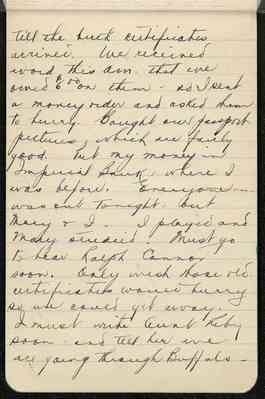 till the birth certificates
arrived. We received
word this a.m. that we
owed 6.00 on them - so I sent
a money order and asked them
to hurry. Bought our passport
pictures, which are fairly
good. Put my money in
Imperial Bank, where I
was before. Everyone
was out tonight but
Mary & I. I played and
Mary studied. Must go
to hear Ralph Connor
soon. Only wish those old
certificates would hurry
so we could get away.
I must write Aunt
soon and tell her we
are going through Buffalo -